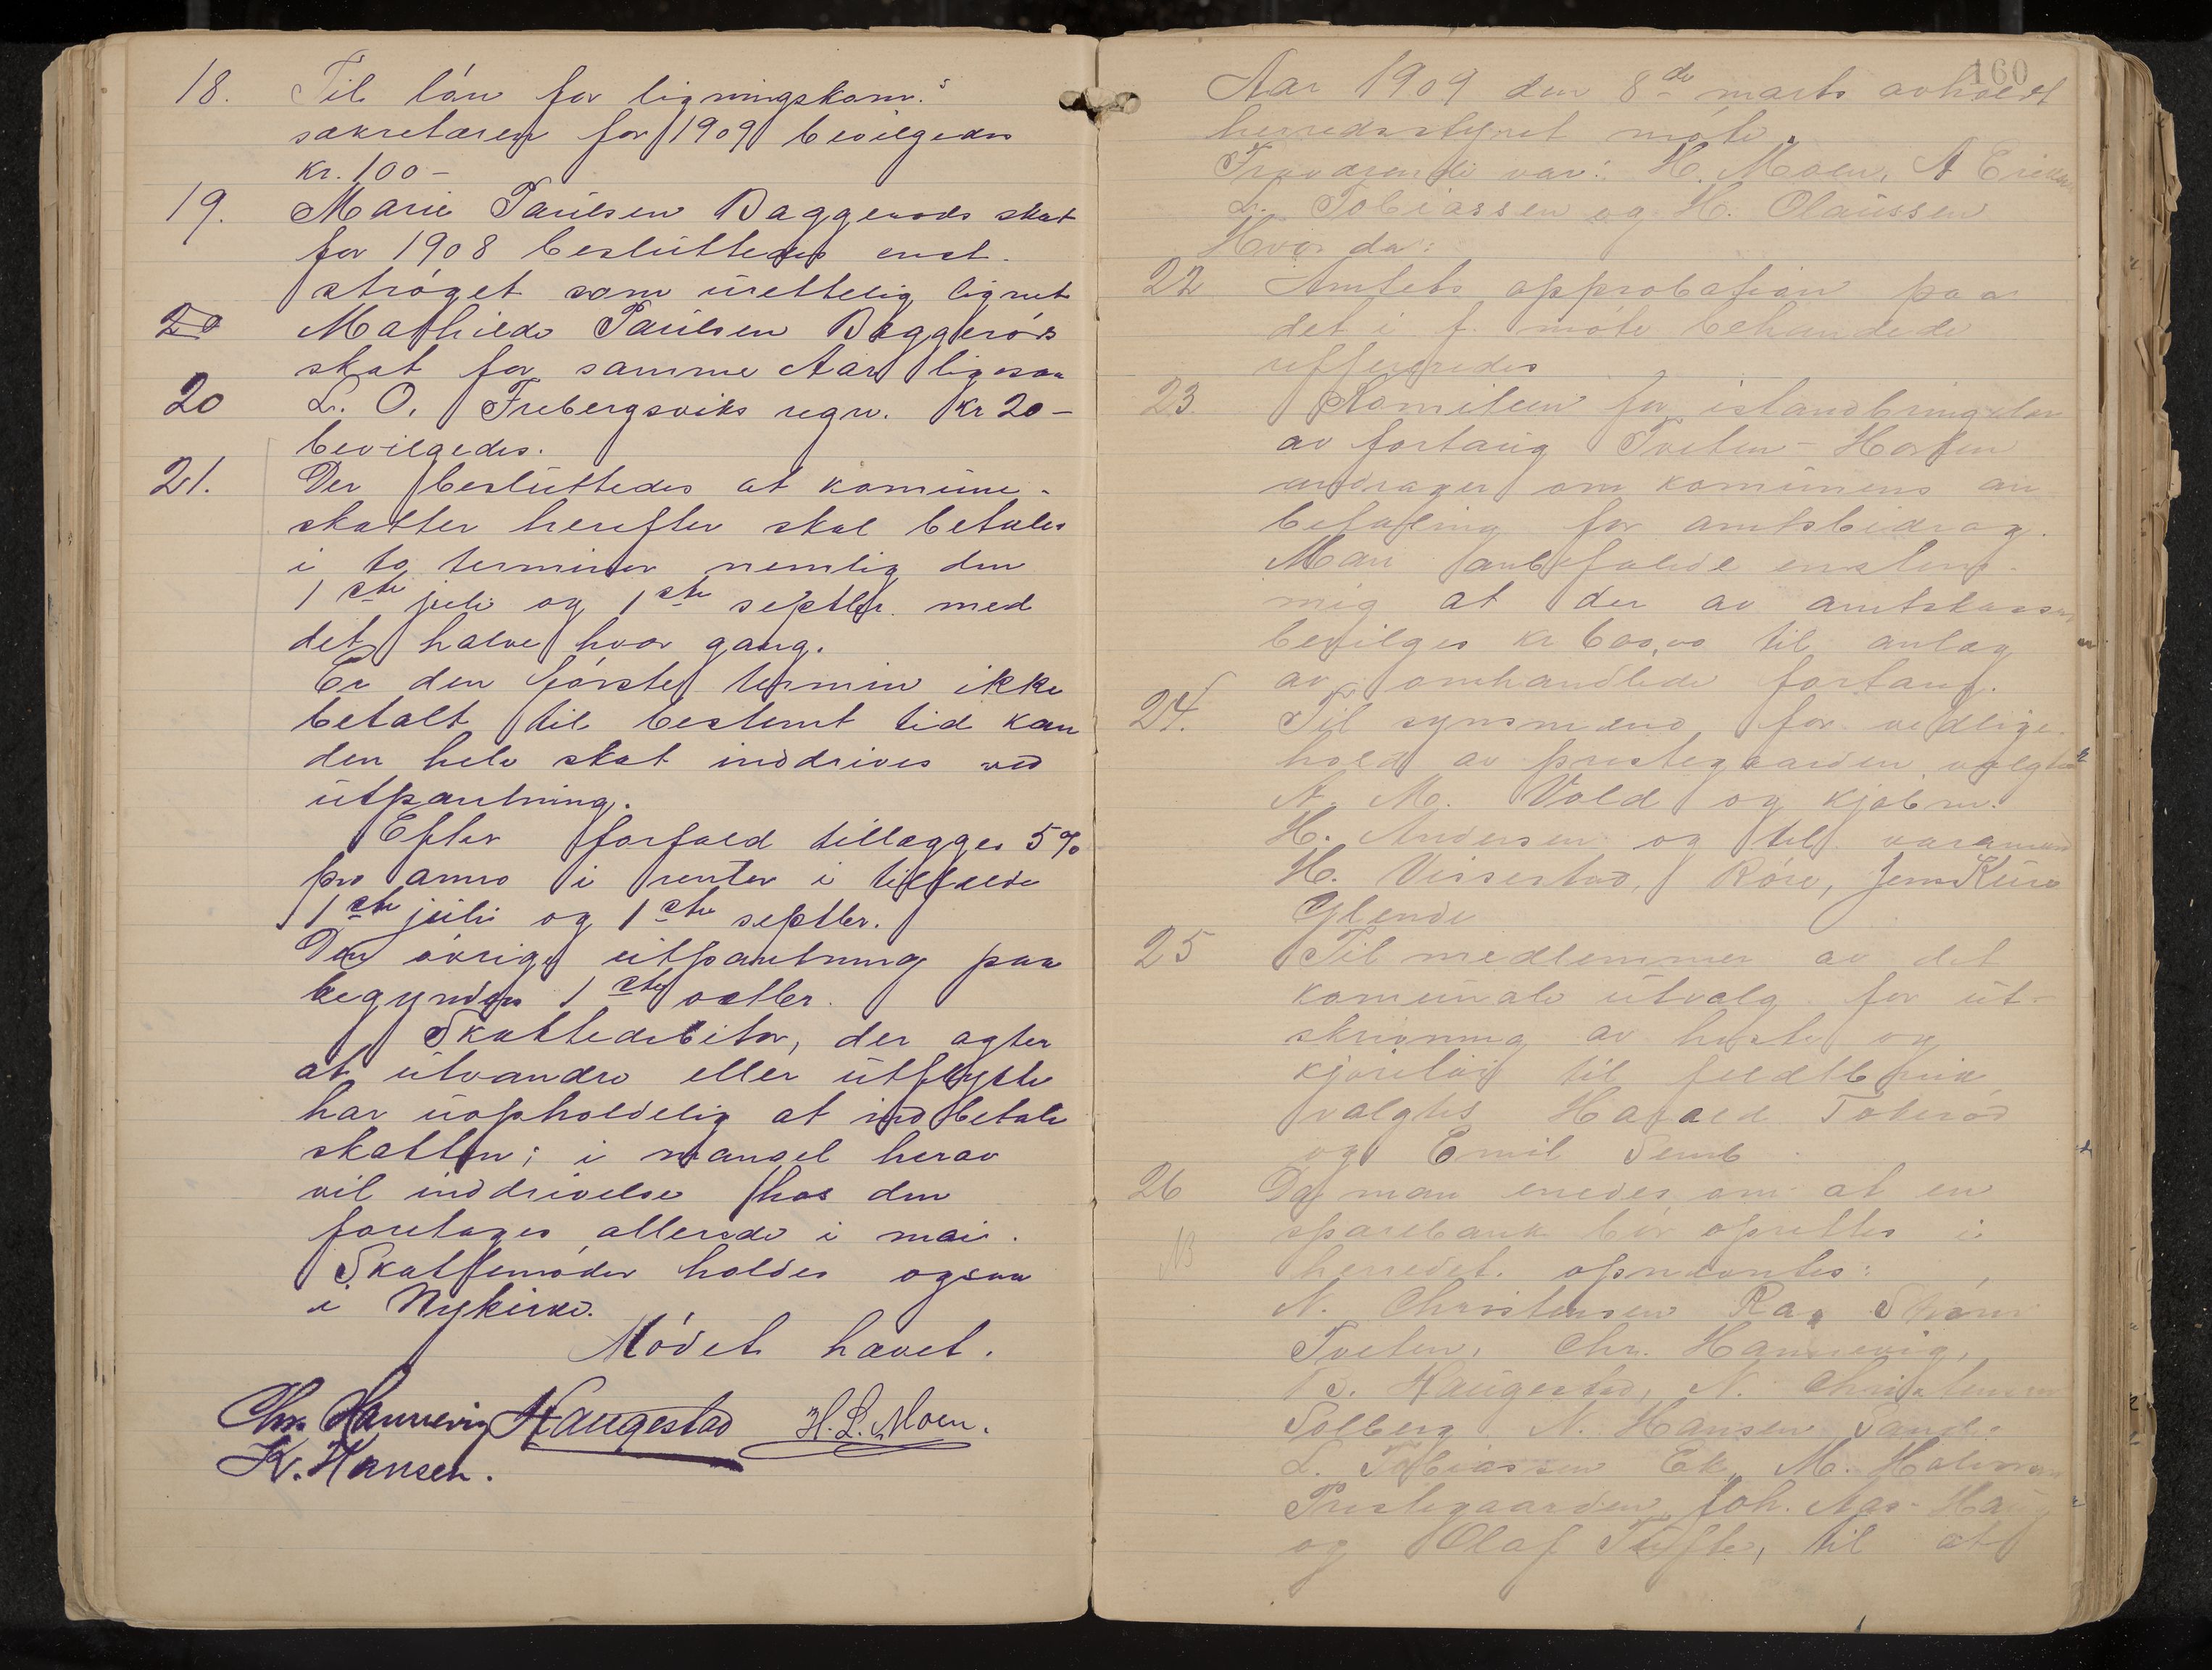 18. Til lön for ligningskom.s
sekretæren for 1909 bevilgedes
kr. 100 -
19. Marie Paulsen Baggerøds skat
for 1908 besluttedes ind-
strøget som urettelig lignet
20 Mathilde Paulsen Baggerøds
skat for samme Aar ligesaa
20 L. O. Frebergsviks regn. kr 20 -
bevilgedes.
21. Der besluttedes at komune-
skatter herefter skal betales
i to terminer nemlig den
1ste juli og 1ste septbr. med
det halve hver gang.
Er den første termin ikke
betalt til bestemt tid kan
den hele skat inddrives ved
utpantning.
Efter forfald tillægges 5%
pro anno i renter i tilfælde
1ste juli og 1ste septbr.
Den øvrige utpantning paa
begyndes 1ste octbr.
Skattedebitor, der agter
at utvandre eller utflytte
har uopholdelig at indbetale
skatten; i mangel herav
vil inddrivelse hos dem
foretages allerede i mai.
Skattemøder holdes ogsaa
i Nykirke.
Mødet hævet.
Chr. Hannevig Haugestad H. L. Moen.
K. Hansen.
160
Aar 1909 den 8de marts avholdt
herredsstyret møte.
Fraværende var: H. Moen, A Eriksen
L. Tobiassen og H. Olaussen
Hvor da:
22 Amtets approbation paa
det i f. møte behandlede
refereredes
23. Komiteen for istandbringelse
av fortaug Tveten - Horten
andrager om komunens an
befaling for amtsbidrag.
Man anbefalede enstem-
mig at der av amtskassen
bevilges kr 600,00 til anlæg
av omhandlede fortaug.
24. Til synsmænd for vedlige-
hold av prestegaarden valgtes
A. M. Vold og kjøbm.
H. Andersen og til varamænd
H. Vissestad, Røre, Jens Kure
Glende
25 Til medlemmer av det
komunale utvalg for ut-
skrivning av heste og
kjøretøi til feltbruk
valgtes Harald Toterød
og Emil Semb.
26 Da man enedes om at en
sparebank bør oprettes i
NB herredet. opnævntes:
N. Christensen Ra, Strøm
Tveten, Chr. Hannevig,
B. Haugestad, N. Christensen
Solberg, N. Hansen Sand-
L. Tobiassen Ek, M. Holman
Prestegaarden, Joh. Aas- Haug
og Olaf Tufte, til at